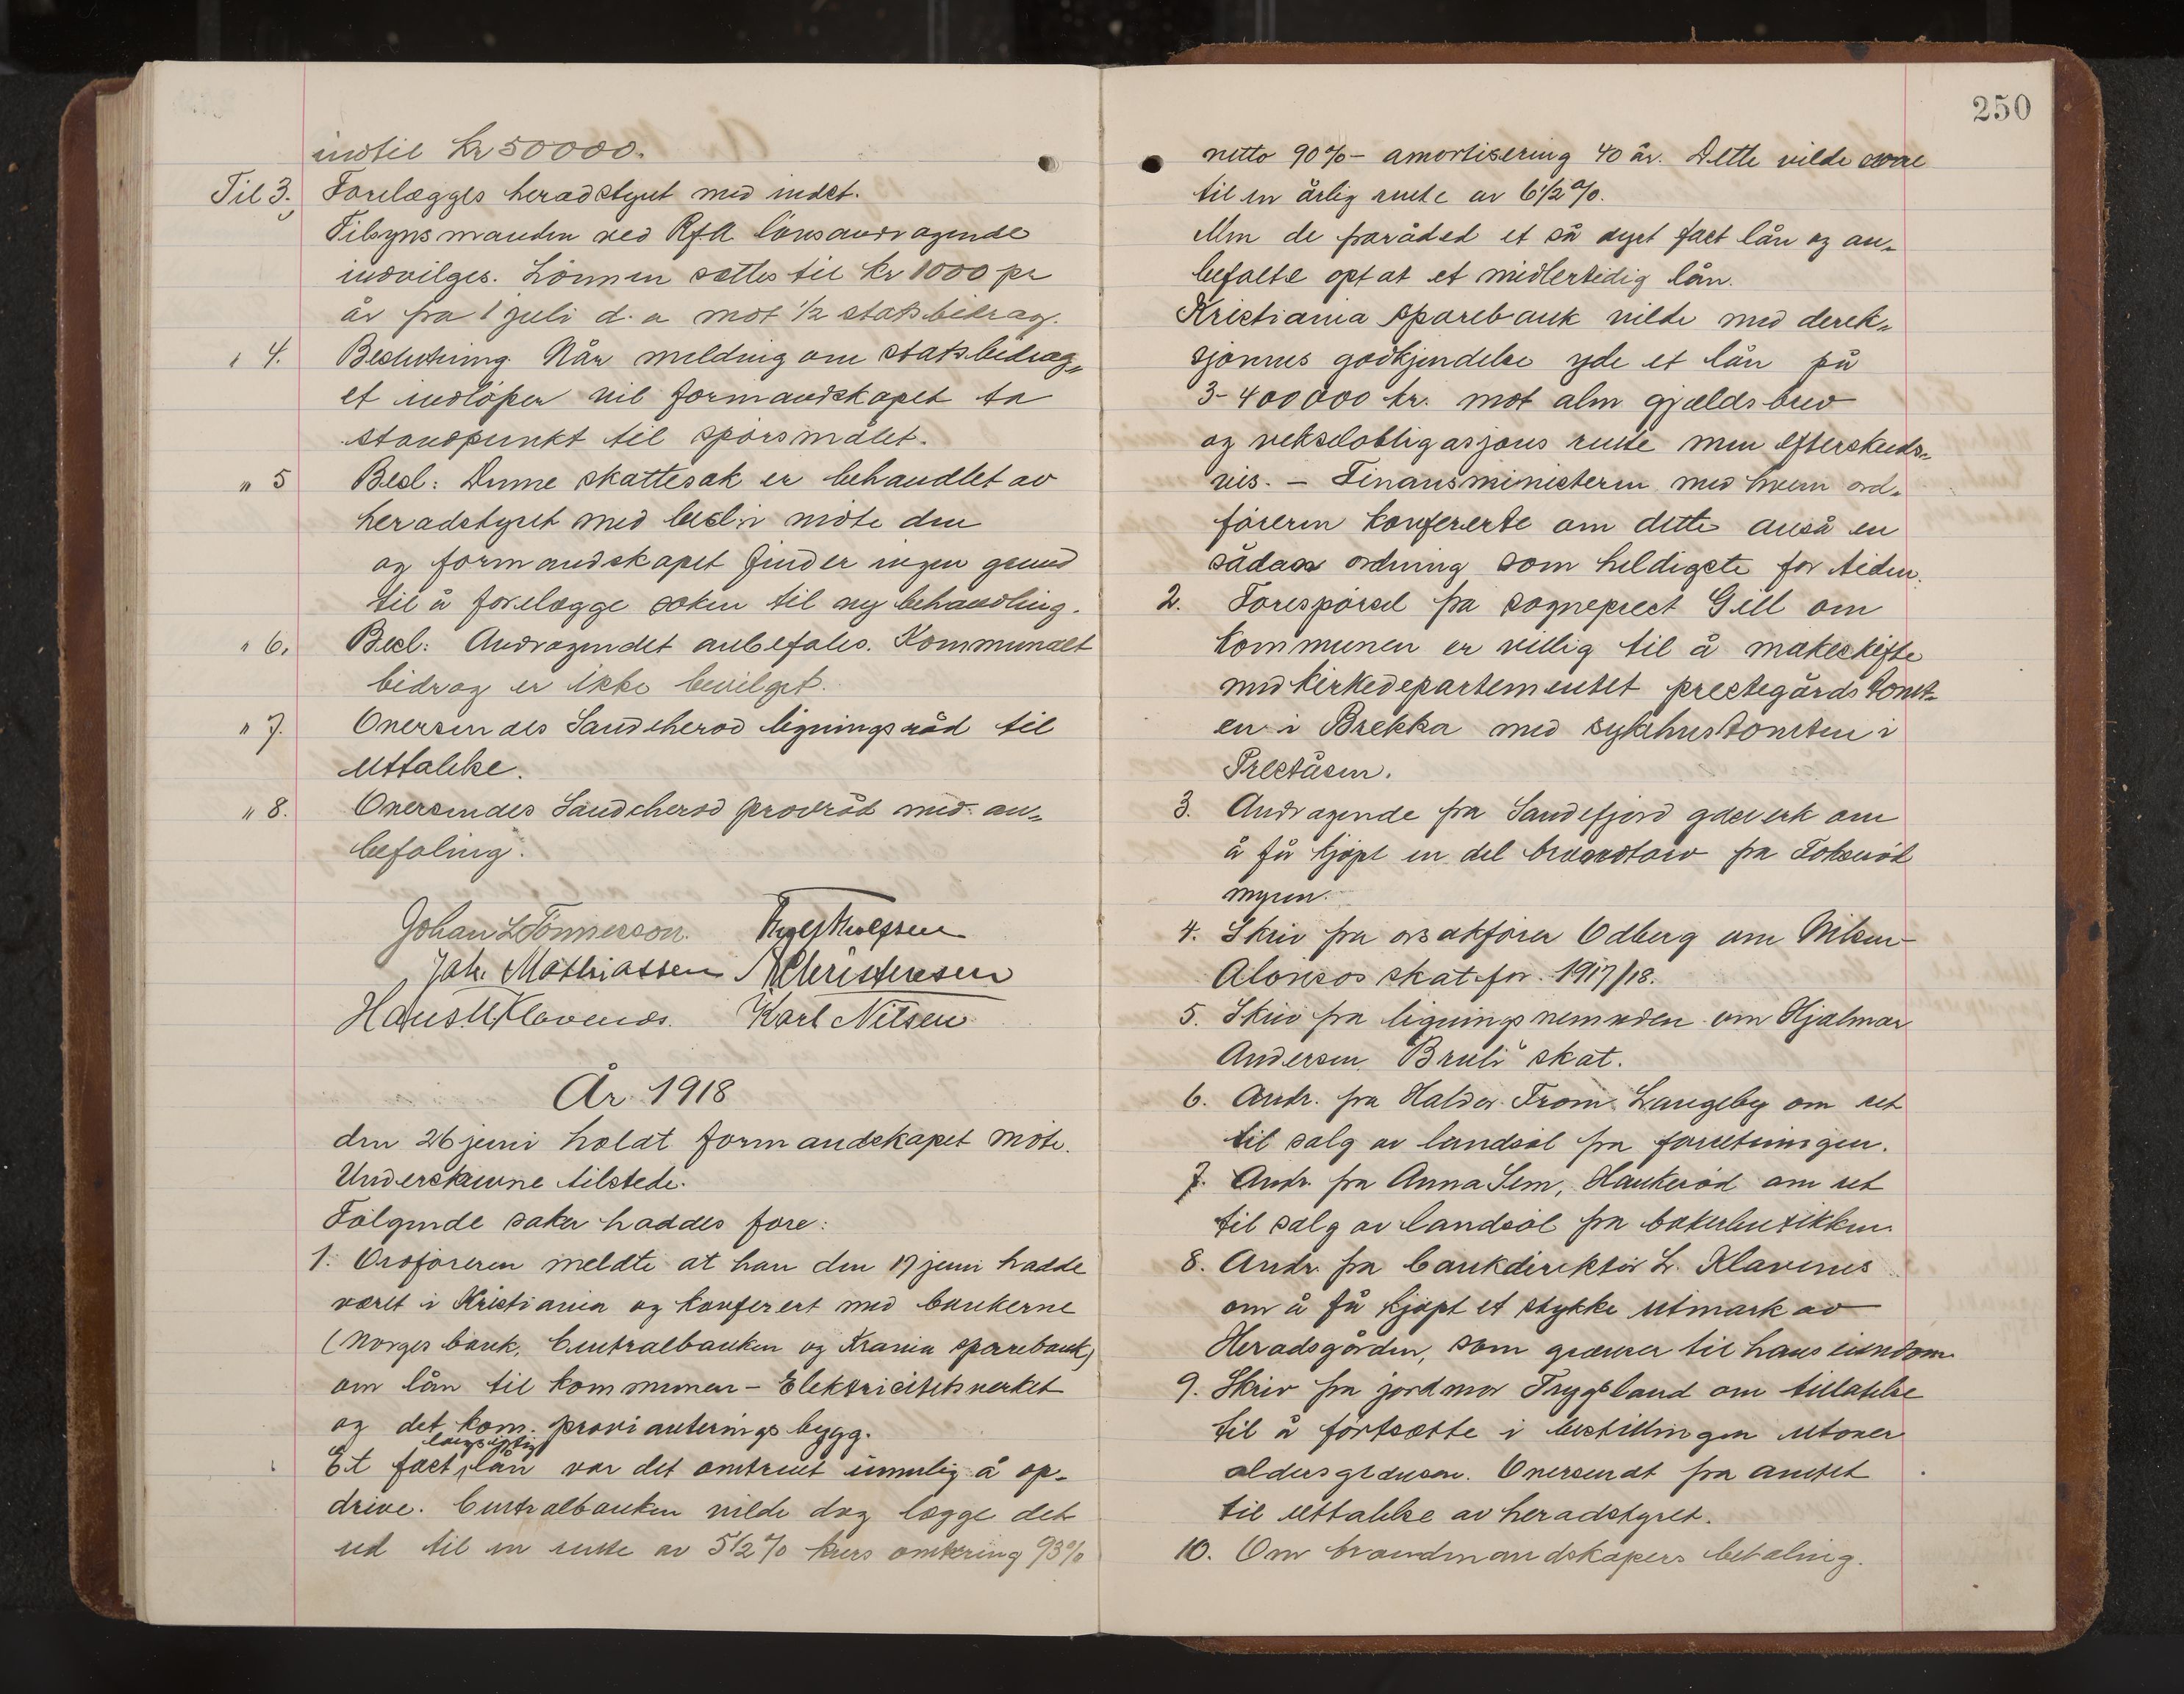 indtil kr 50000.
Til 3. Forelægges heradstyret med indst.
Tilsynsmanden ved RfA lönsandragende
indvilges. Lönnen sættes til kr 1000 pr
år fra 1 juli d. a mot ½ statsbidrag.
" 4. Beslutning. Når melding om statsbidrag-
et indlöper vil formandskapet ta
standpunkt til spörsmålet.
" 5 Besl: Denne skattesak er behandlet av
heradstyret med besl. i möte den
og formandskapet finder ingen grund
til å forelægge saken til ny behandling.
" 6. Besl: Andragendet anbefales. Kommunalt
bidrag er ikke bevilget.
" 7. Oversendes Sandeherad ligningsråd til
uttalelse.
" 8. Oversendes Sandeherad provråd med an-
befaling.
Johan L Tönnesson.
Joh. Mathiassen A Christensen
Hans M Klavenes. Karl Nilsen
År 1918
den 26 juni holdt formandskapet möte.
Underskrevne tilstede.
Fölgende saker haddes fore:
1. Ordföreren meldte at han den 17 juni hadde
været i Kristiania og konferert med bankerne
(Norges bank, Centralbanken og Krania sparebank)
om lån til kommunen - Elektricitetsverket
og det kom. provianteringsbygg.
langsiktig
Et fast lån var det omtrent umulig å op-
drive. Centralbanken vilde dog lægge det
ut til en rente av 5½ % kurs omkring 93%
250
netto 90% - amortisering 40 år. Dette vilde svare
til en årlig rente av 6½ %.
Men de frarådet et så dyrt fast lån og an-
befalte optat et midlertidig lån.
Kristiania Sparebank vilde med derek-
sjonens godkjendelse yde et lån på
3-400000 kr. mot alm gjældsbrev
og vekselobligasjons rente men efterskuds-
vis. - Finansministeren med hvem ord-
föreren konfererte om dette anså en
sådan ordning som heldigste for tiden.
2. Forespörsel fra sogneprest Gill om
kommunen er villig til å makeskifte
med kirkedepartementet prestegårdstomt-
en i Brekka med sykehustomten i
Preståsen.
3. Andragende fra Sandefjord gasverk om
å få kjöpt en del brændtorv fra Fokseröd
myren.
4. Skriv fra o.r.sakförer Odberg om Nilsen-
Alonsos skat for 1917/18.
5. Skriv fra ligningsnemnden om Hjalmar
Andersen "Bruli" skat.
6. Andr. fra Halvor From Langeby om ret
til salg av landsöl fra forretningen.
7. Andr. fra Anna Sem, Haukeröd om ret
til salg av landsöl fra bakerbutikken.
8. Andr. fra bankdirektör L. Klavenes
om å få kjöpt et stykke utmark av
Heradsgården, som grænser til hans eiendom.
9. Skriv fra jordmor Trygsland om tillatelse
til å fortsætte i bestillingen utover
aldersgrænsen. Oversendt fra amtet
til uttalelse av heradstyret.
10. Om brandmandskapers betaling.